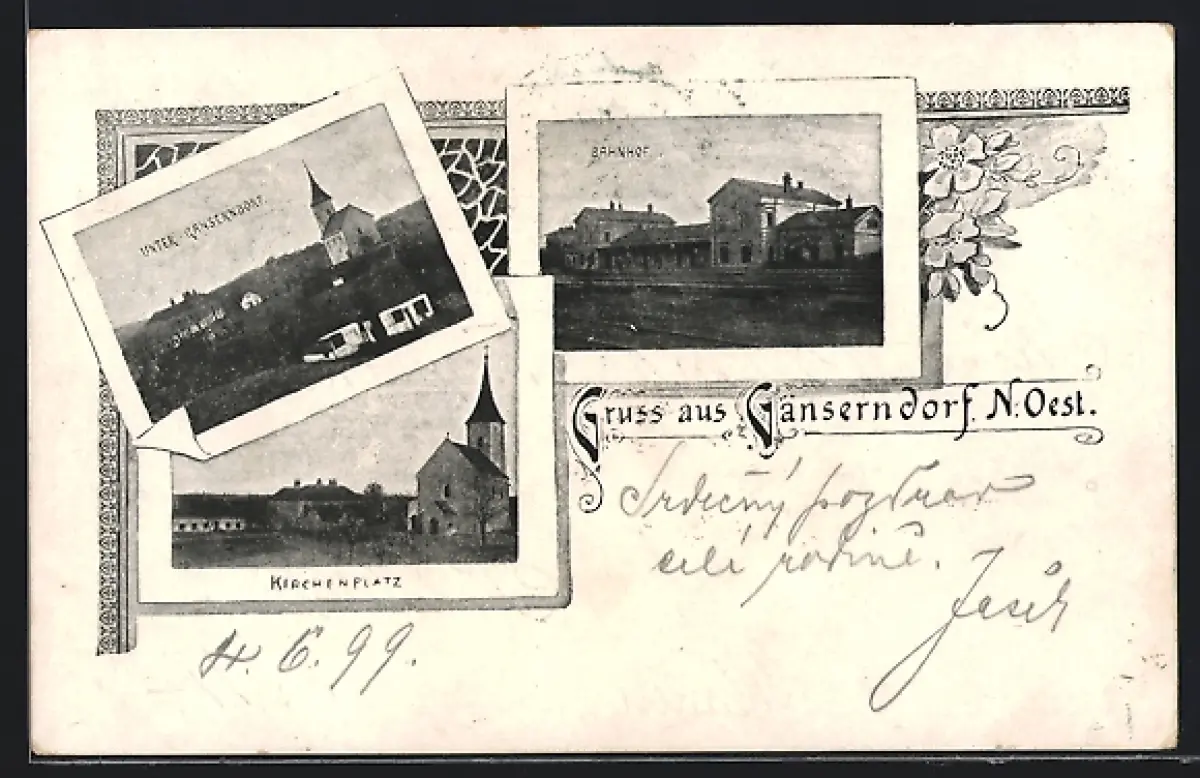 UNTER-GÄNSERNDORF.
BAHNHOF.
Gruss aus Gänserndorf N. Oest.
KIRCHENPLATZ
Srdečný pozdrav
celé rodině.
4. 6. 99.